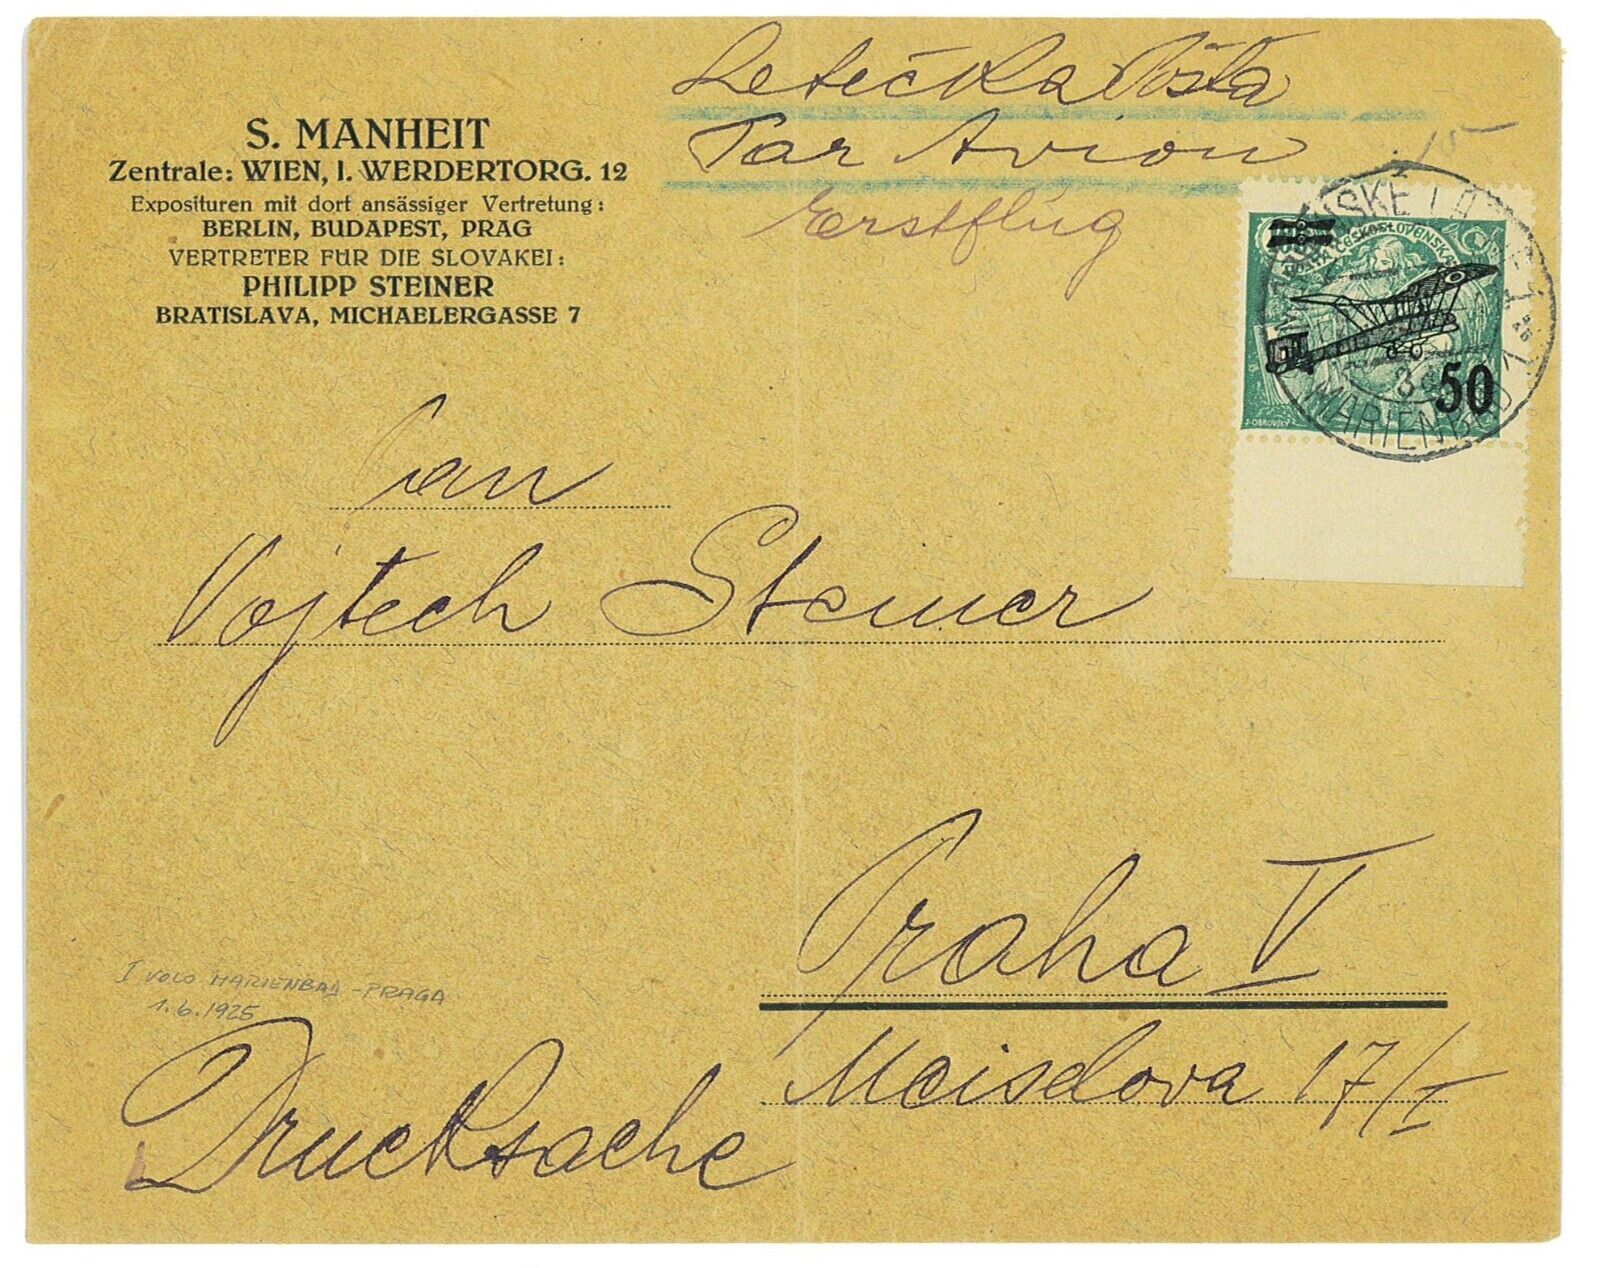 Letecká Pošta
Par Avion
15
Erstflug
S. MANHEIT
Zentrale: WIEN, I. WERDERTORG. 12
Exposituren mit dort ansässiger Vertretung:
BERLIN, BUDAPEST, PRAG
VERTRETER FÜR DIE SLOVAKEI:
PHILIPP STEINER
BRATISLAVA, MICHAELERGASSE 7
ČESKOSLOVENSKÁ
50
J. OBROVSKÝ
MARIENBAD 1
Pan
Vojtech Steiner
Praha V
Meislova 17/I
I VOLO MARIENBAD - PRAGA
1.6.1925
Drucksache